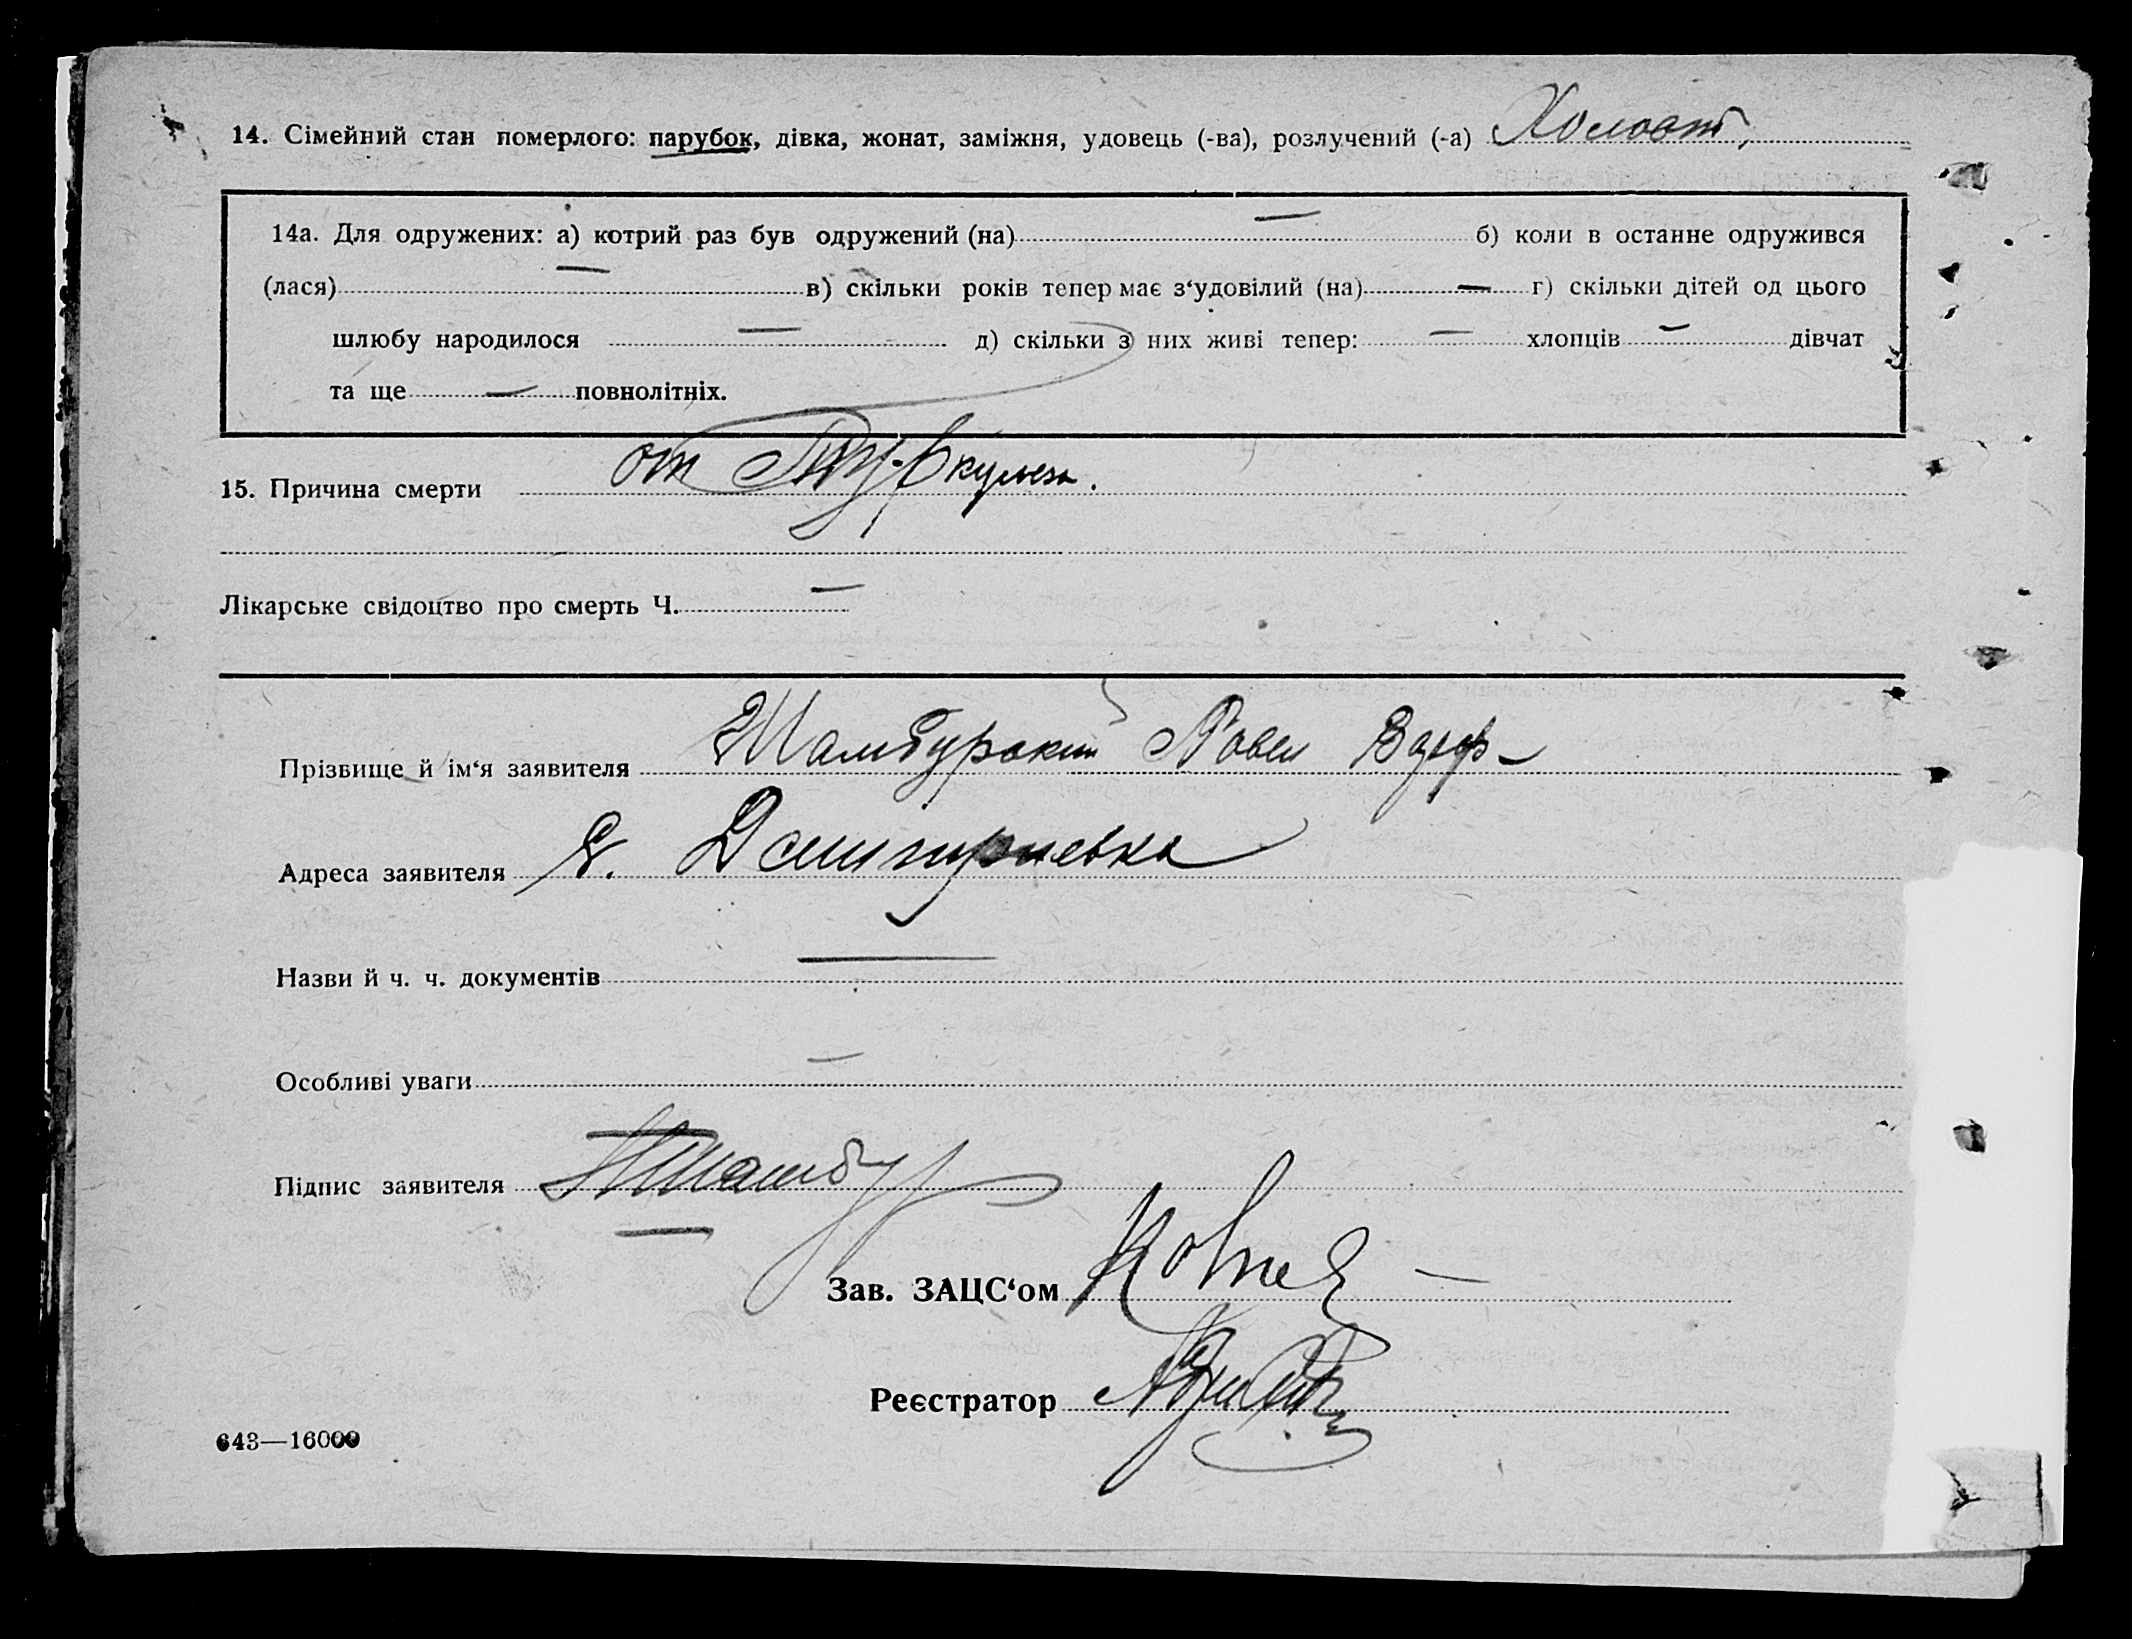 14. Сімейний стан померлого: парубок, дівка, жонат, заміжня, удовець (-ва), розлучений (-а) Холост,
14а. Для одружених: а) котрий раз був одружений (на) — б) коли в останне одружився
(лася) — в) скільки років тепер має з‘удовілий (на) — г) скільки дітей од цього
шлюбу народилося — д) скільки з них живі тепер: — хлопців — дівчат
та ще — повнолітніх.
15. Причина смерти от Туберкульоза.
Лікарське свідоцтво про смерть Ч. —
Прізвище й ім‘я заявителя Шамбурский Павел
Адреса заявителя
Назви й ч. ч. документів —
Особливі уваги —
Підпис заявителя
Зав. ЗАЦС‘ом
Реєстратор
643—16000